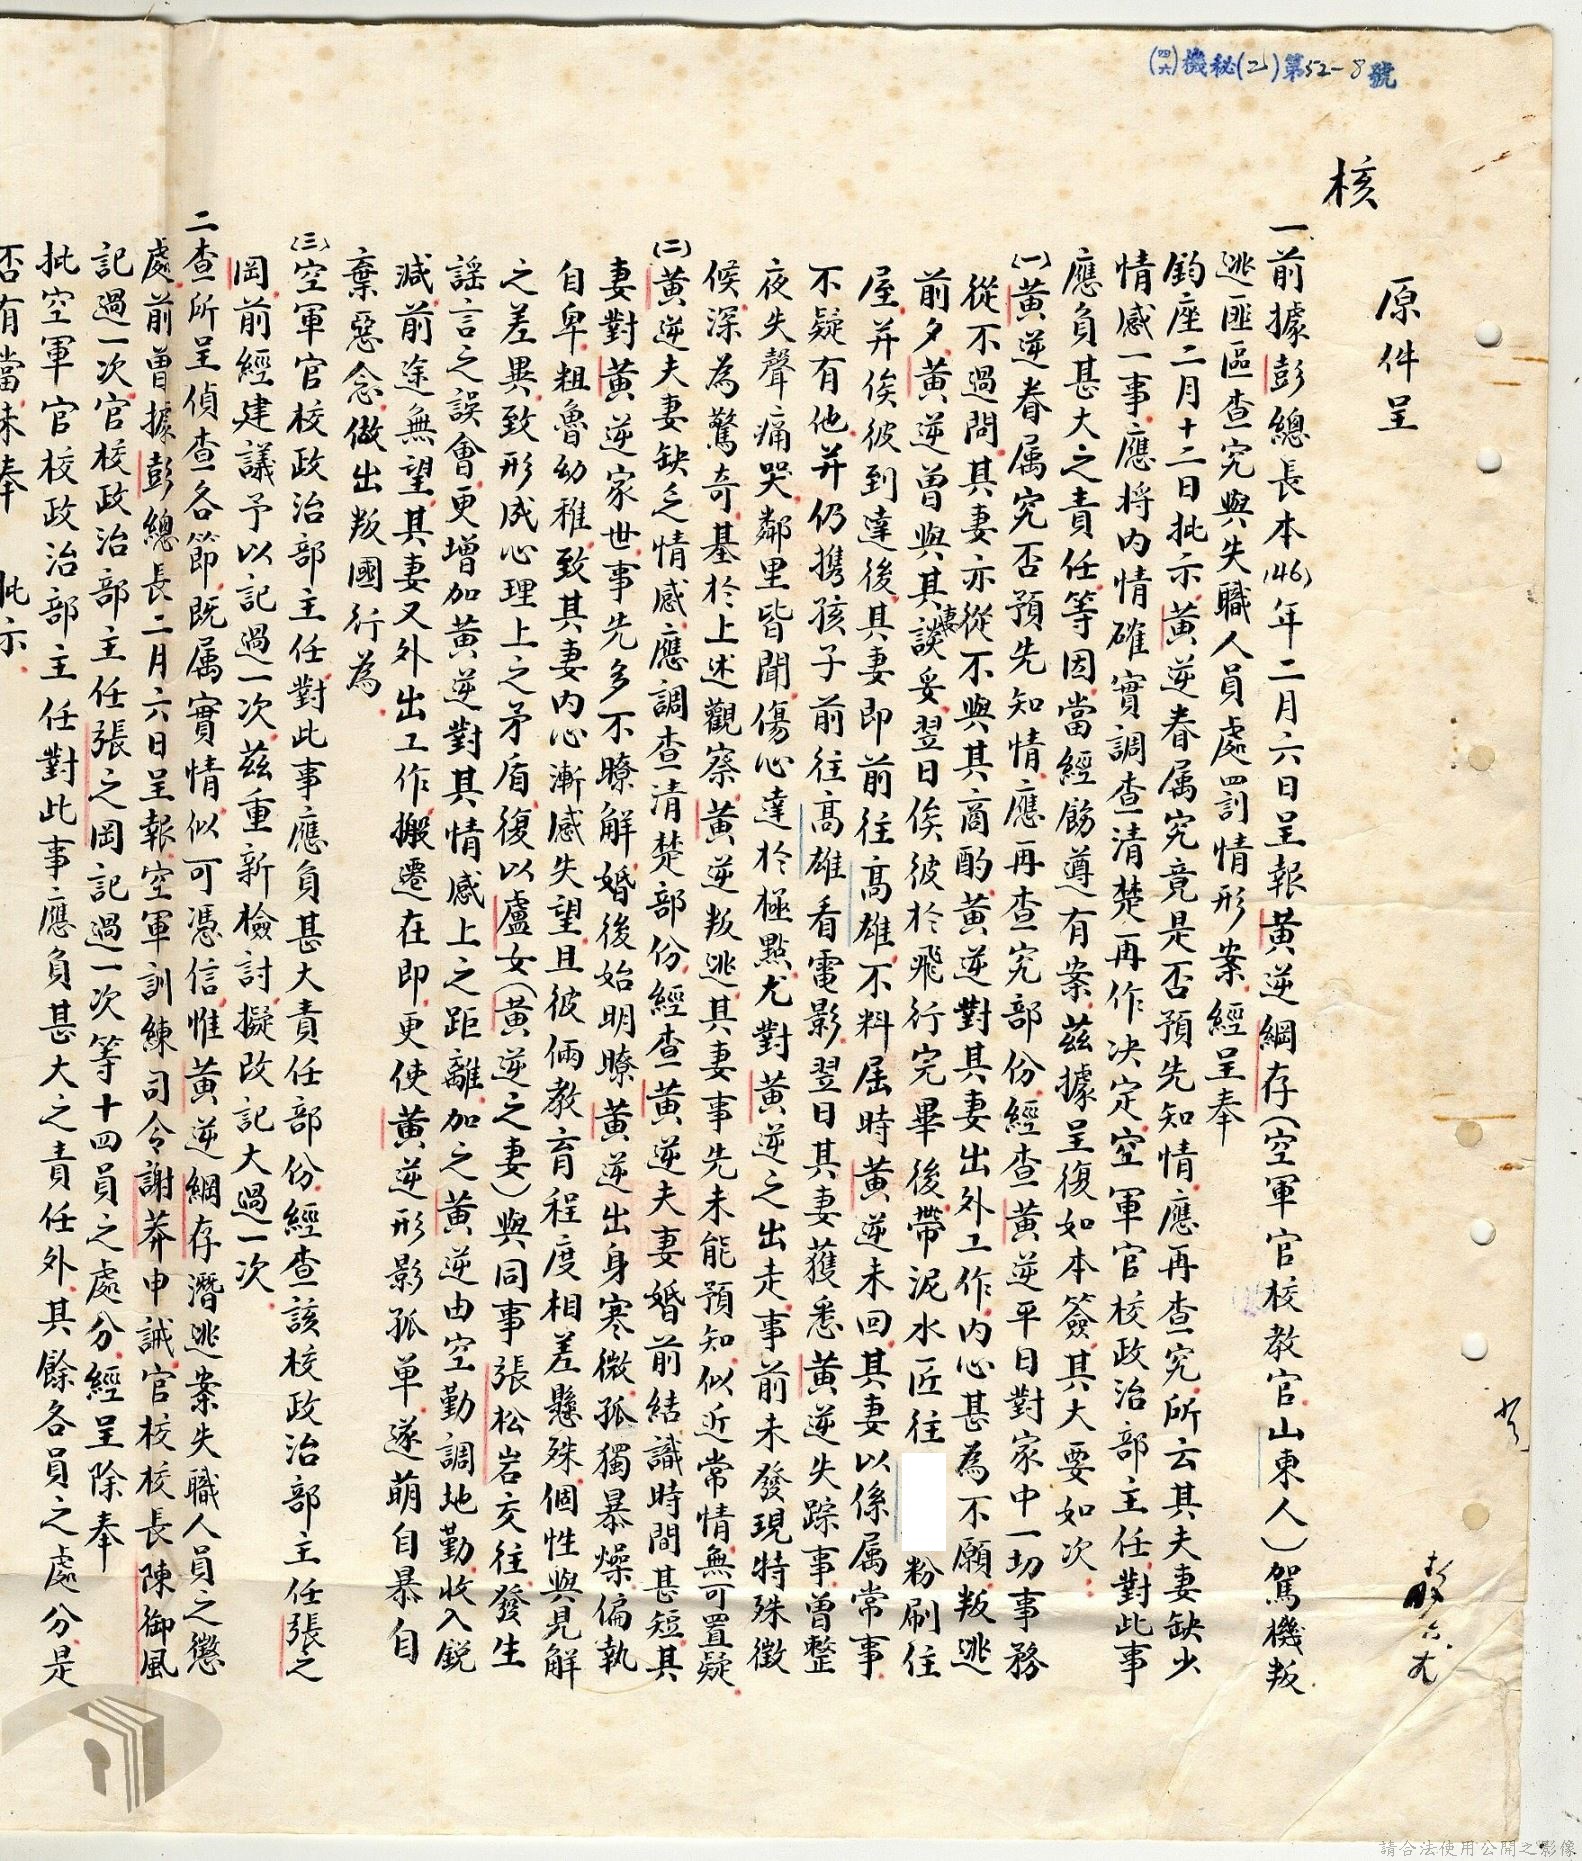 (四六)機秘(乙)第52-8號
原件呈
核
一、前據彭總長本(46)年二月六日呈報黃逆綱存(空軍官校教官山東人)駕機叛
逃匪區查究與失職人員處罰情形案經呈奉
鈞座二月十二日批示黃逆眷屬究竟是否預先知情應再查究所云其夫妻缺少
情感一事應將內情確實調查清楚再作決定空軍官校政治部主任對此事
應負甚大之責任等因當經飭遵有案茲據呈復如本簽其大要如次：
(一)黃逆眷屬究否預先知情應再查究部份經查黃逆平日對家中一切事務
從不過問其妻亦從不與其商酌黃逆對其妻出外工作內心甚為不願叛逃
前夕黃逆曾與其妻談妥翌日俟彼於飛行完畢後帶泥水匠往 粉刷住
屋并俟彼到達後其妻即前往高雄不料屆時黃逆未回其妻以係屬常事
不疑有他并仍携孩子前往高雄看電影翌日其妻獲悉黃逆失踪事曾整
夜失聲痛哭鄰里皆聞傷心達於極點尤對黃逆之出走事前未發現特殊徵
候深為驚奇基於上述觀察黃逆叛逃其妻事先未能預知似近常情無可置疑
(二)黃逆夫妻缺乏情感應調查清楚部份經查黃逆夫妻婚前結識時間甚短其
妻對黃逆家世事先多不瞭解婚後始明瞭黃逆出身寒微孤獨暴燥偏執
自卑粗魯幼稚致其妻內心漸感失望且彼倆教育程度相差懸殊個性與見解
之差異致形成心理上之矛盾復以盧女(黃逆之妻)與同事張松岩交往發生
謠言之誤會更增加黃逆對其情感上之距離加之黃逆由空勤調地勤收入銳
減前途無望其妻又外出工作搬遷在即更使黃逆形影孤單遂萌自暴自
棄惡念做出叛國行為
(三)空軍官校政治部主任對此事應負甚大責任部份經查該校政治部主任張之
岡前經建議予以記過一次茲重新檢討擬改記大過一次
二查所呈偵查各節既属實情似可憑信惟黃逆綱存潛逃案失職人員之懲
處前曾據彭總長二月六日呈報空軍訓練司令謝莽申誡官校校長陳御風
記過一次官校政治部主任張之岡記過一次等十四員之處分經呈除奉
批空軍官校政治部主任對此事應負甚大之責任外其餘各員之處分是
否有當未奉 批示
請合法使用公開之影像